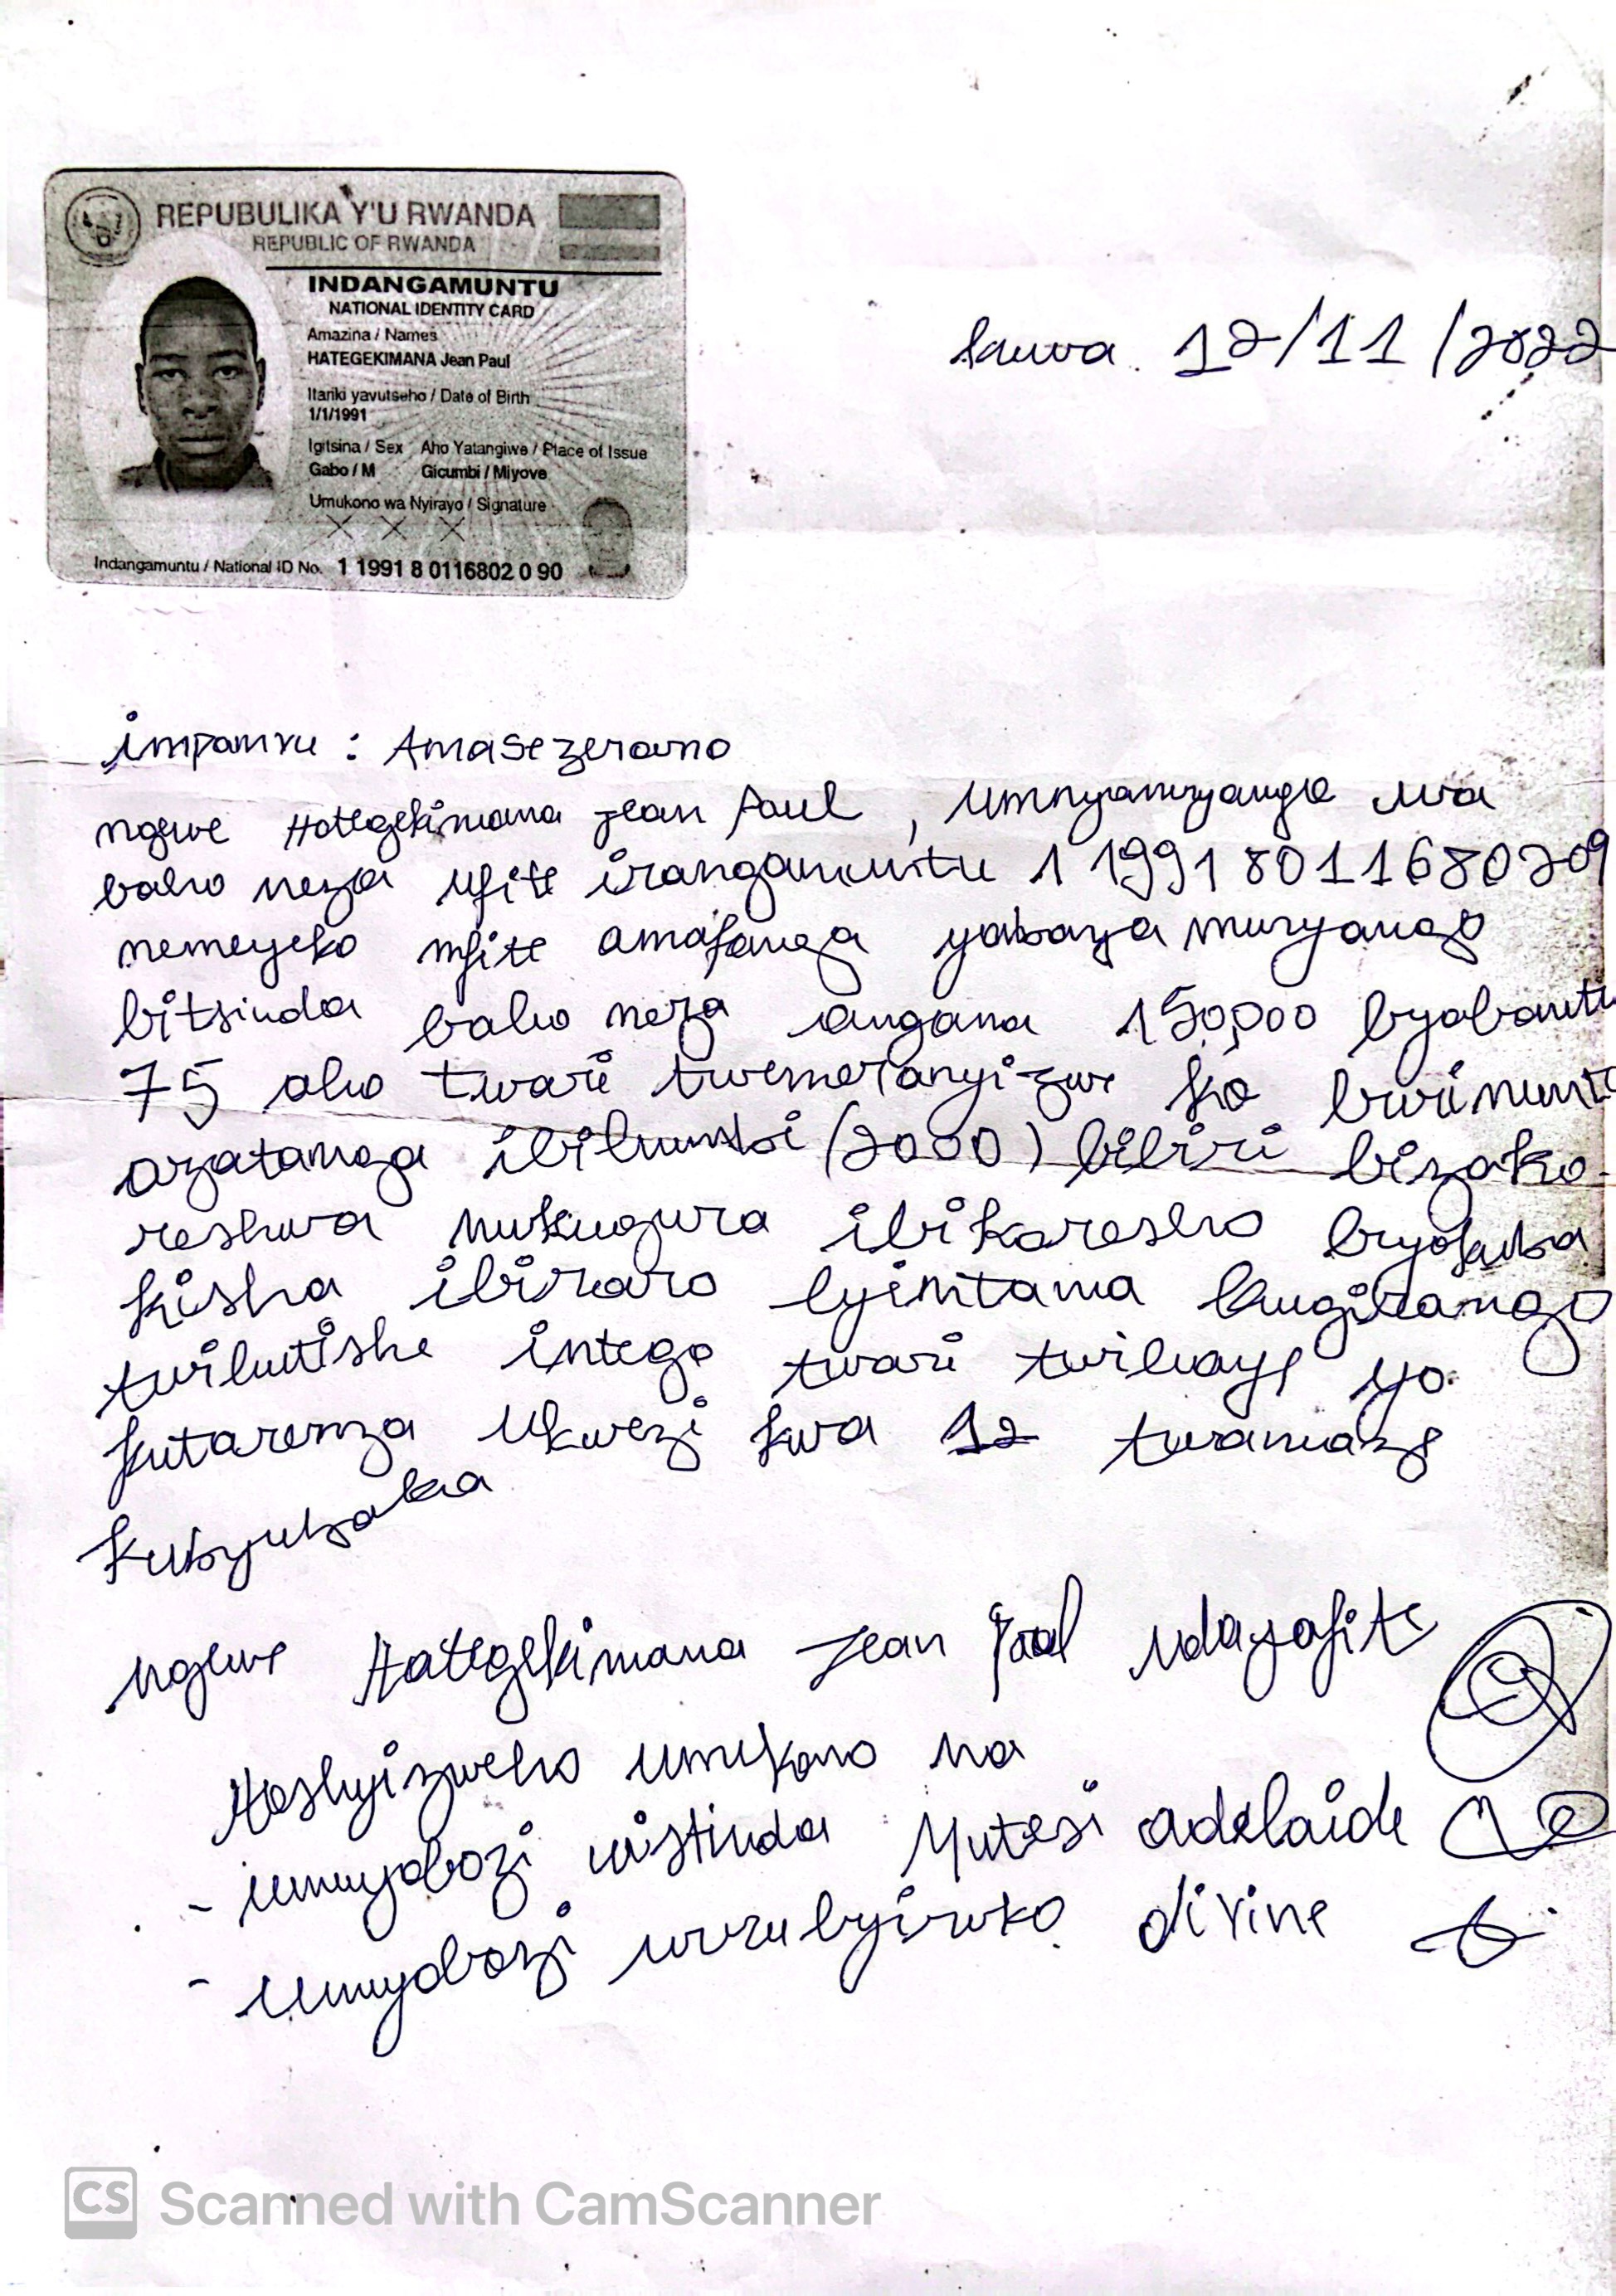 REPUBULIKA Y'U RWANDA
REPUBLIC OF RWANDA
INDANGAMUNTU
NATIONAL IDENTITY CARD
Amazina / Names
HATEGEKIMANA Jean Paul
Itariki yavutseho / Date of Birth
1/1/1991
Igitsina / Sex Aho Yatangiwe / Place of Issue
Gabo / M Gicumbi / Miyove
Umukono wa Nyirayo / Signature
Indangamuntu / National ID No. 1 1991 8 0116802 0 90
kuwa 12/11/2022
impamvu : Amasezerano
ngewe Hategekimana jean Paul , Umnyamuryango wa
baho neza ufite irangamuntu 1 1991 8011680209
nemeyeko mfite amafanga yabanyamuryango
bitsinda baho neza angana 150,000 byabantu
75 aho twari twemeranyizwe ko buri muntu
azatanga ibihumbi (2000) bibiri bizako-
reshwa mukugura ibikoresho byokuba
kisha ibiraro byintama kugirango
twihutishe intego twari twihaye yo
kutarenza Ukwezi kwa 12 twamaze
kubyubaka
ngewe Hategekimana Jean Paul ndayafite
Hashyizweho umukono na
- umuyobozi witsinda Mutesi adelaide
- umuyobozi wurubyiruko divine
CS Scanned with CamScanner